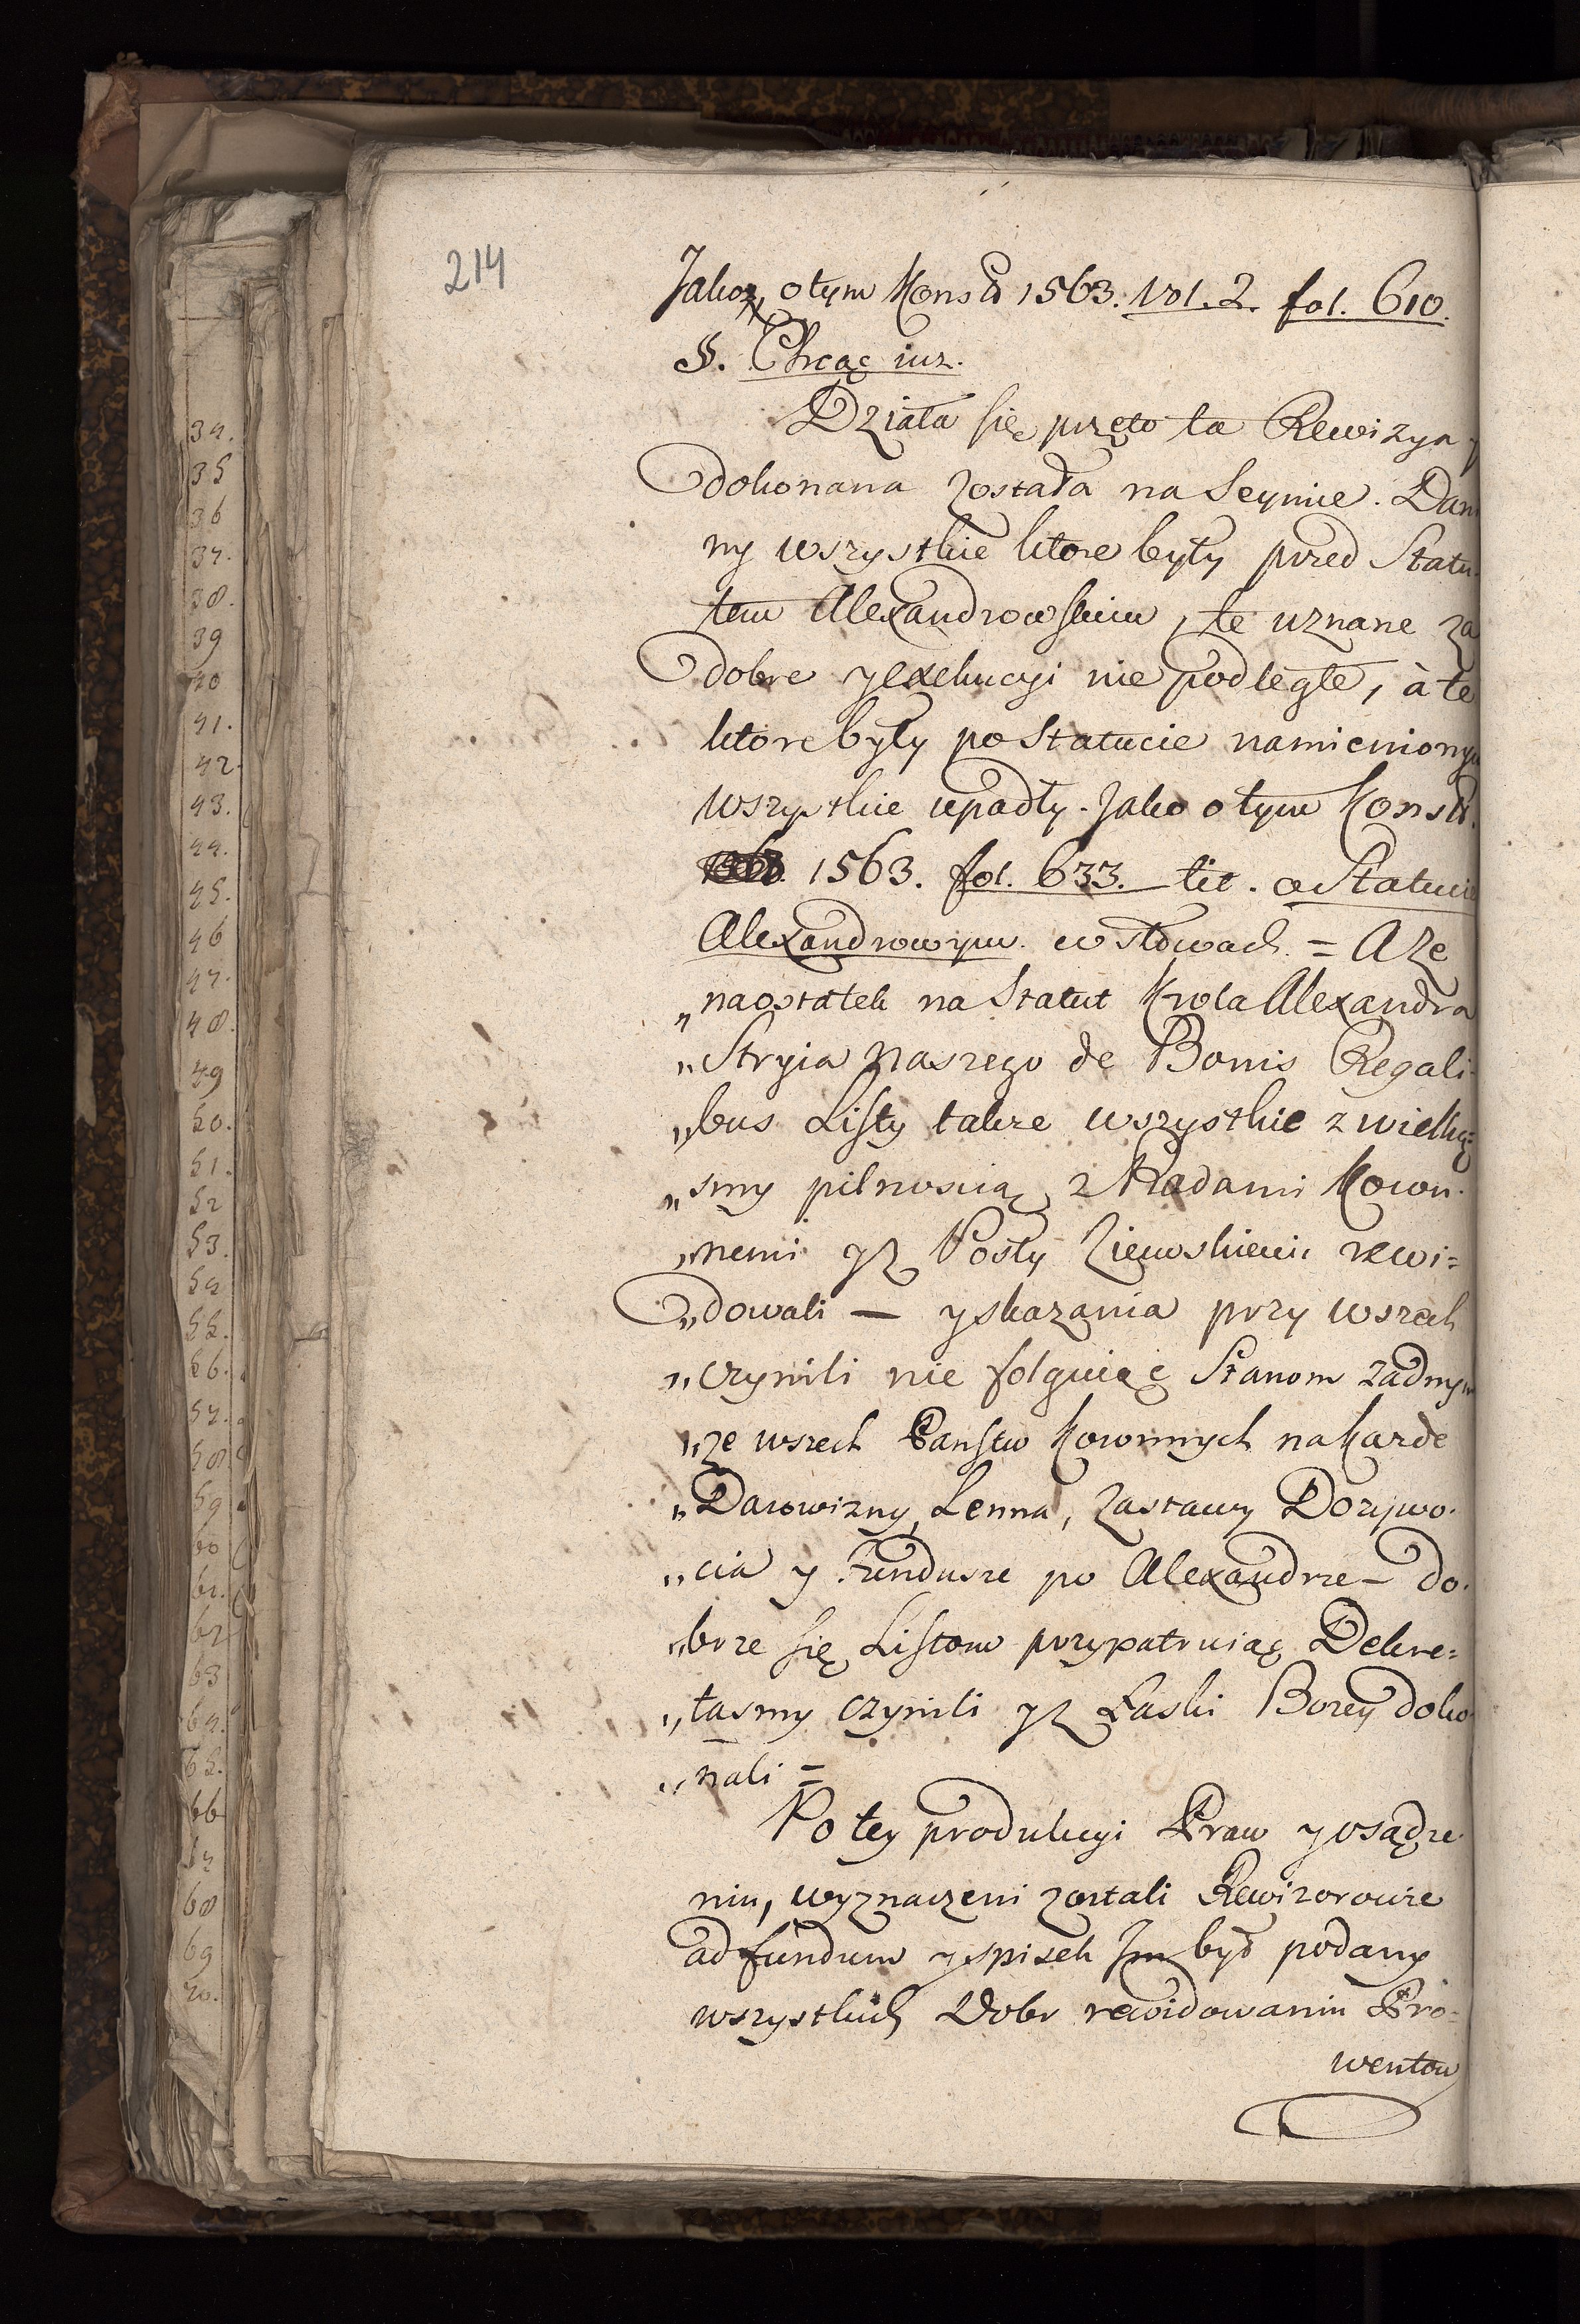 214
Jako o tym Konst 1563. Vol. 2. fol. 610.
§. Chcąc iuz.
Działa się przeto ta Rewizya y
dokonana została na Seymie. Dani
ny wszystkie ktore były przed Statu
tem Alexandrowskim, te uznane za
dobre y exekucyi nie podległe, à te
ktore były po Statucie namienionym
wszystkie upadły. Jako o tym Konst.
1563. fol. 633. tit. o Statucie
Alexandrowym. w słowach = A ze
„ naostatek na Statut Krola Alexandra
„ Stryia naszego de Bonis Regali
„ bus Listy takze wszystkie z wielką
„ smy pilnoscią z Radami Koron
„ nemi y z Posły Ziemskiemi rewi=
„ dowali — y skazania przy wszech
„ czynili nie folguiąc Stanom zadnym
„ ze wszech Panstw Koronnych na kazde
„ Darowizny, Lenna, Zastawy Dozywo.
„ cia y Fundusze po Alexandrze — do.
„ brze się Listom przypatruiąc Dekre=
„ tasmy czynili y z Łaski Bozey doko
„ nali =
Po tey produkcyi Praw y osądze
niu, wyznaczeni zostali Rewizorowie
ad fundum y spisek Im był podany
wszystkich Dobr rewidowaniu Pro=
wentow
34.
35
36
37.
38.
39
40
41.
42.
43.
44.
45.
46
47.
48.
49
50.
51.
52
53.
54
55.
56.
57.
58
59
60
61.
62
63
64.
65.
66
67
68
69
70.